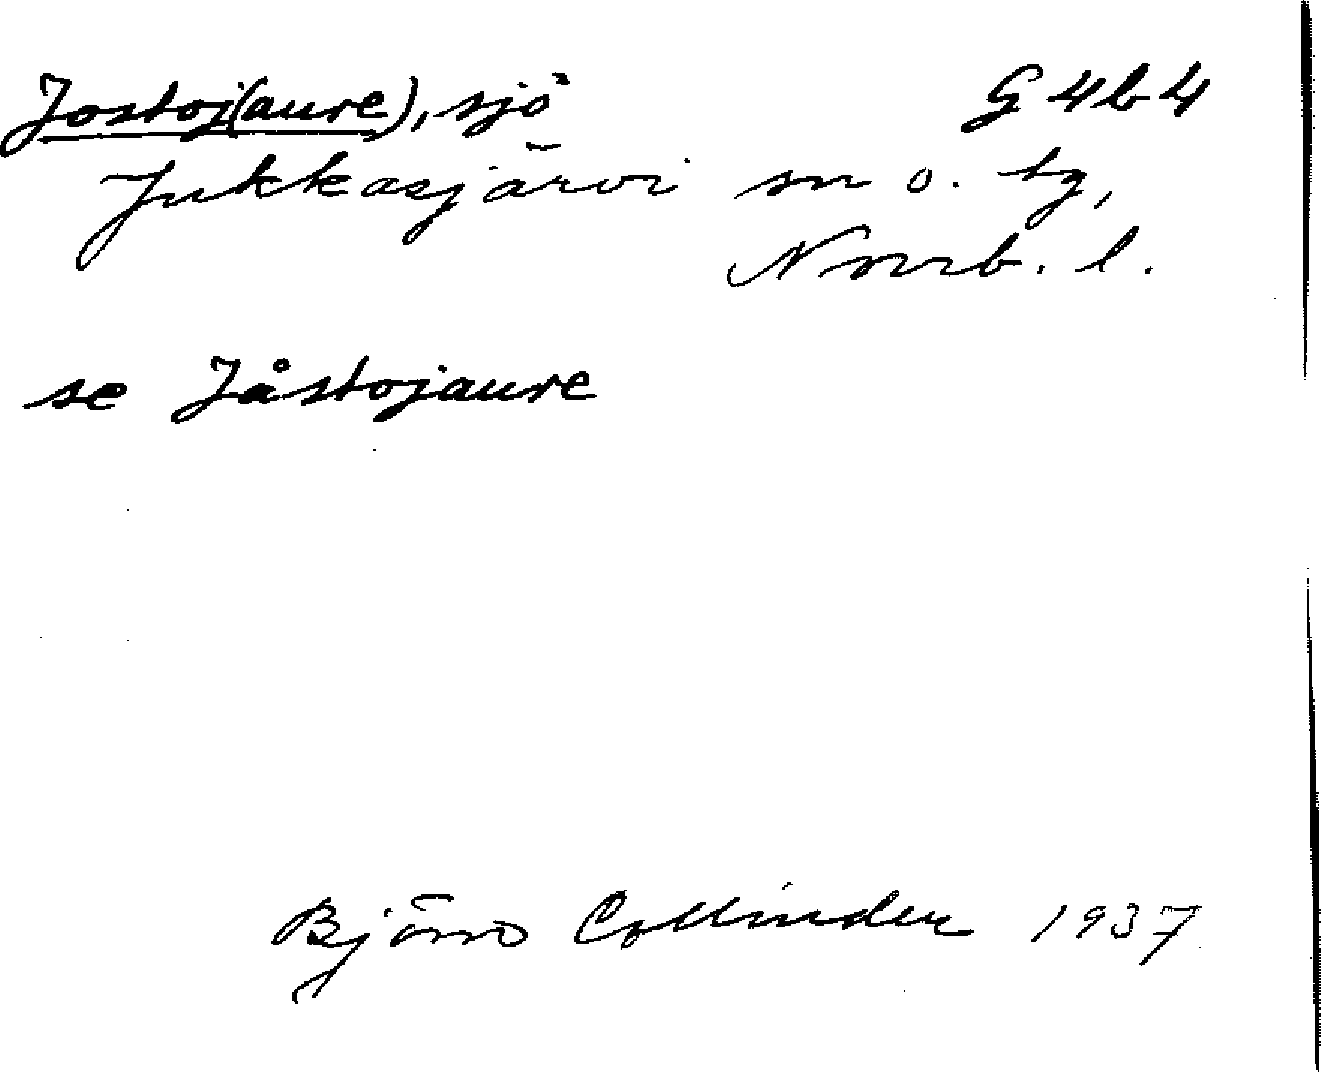 Jostoj(aure), sjö G 4b4
Jukkasjärvi sn o. tg,
Norrb. l.
se Jåstojaure
Björn Collinder 1937